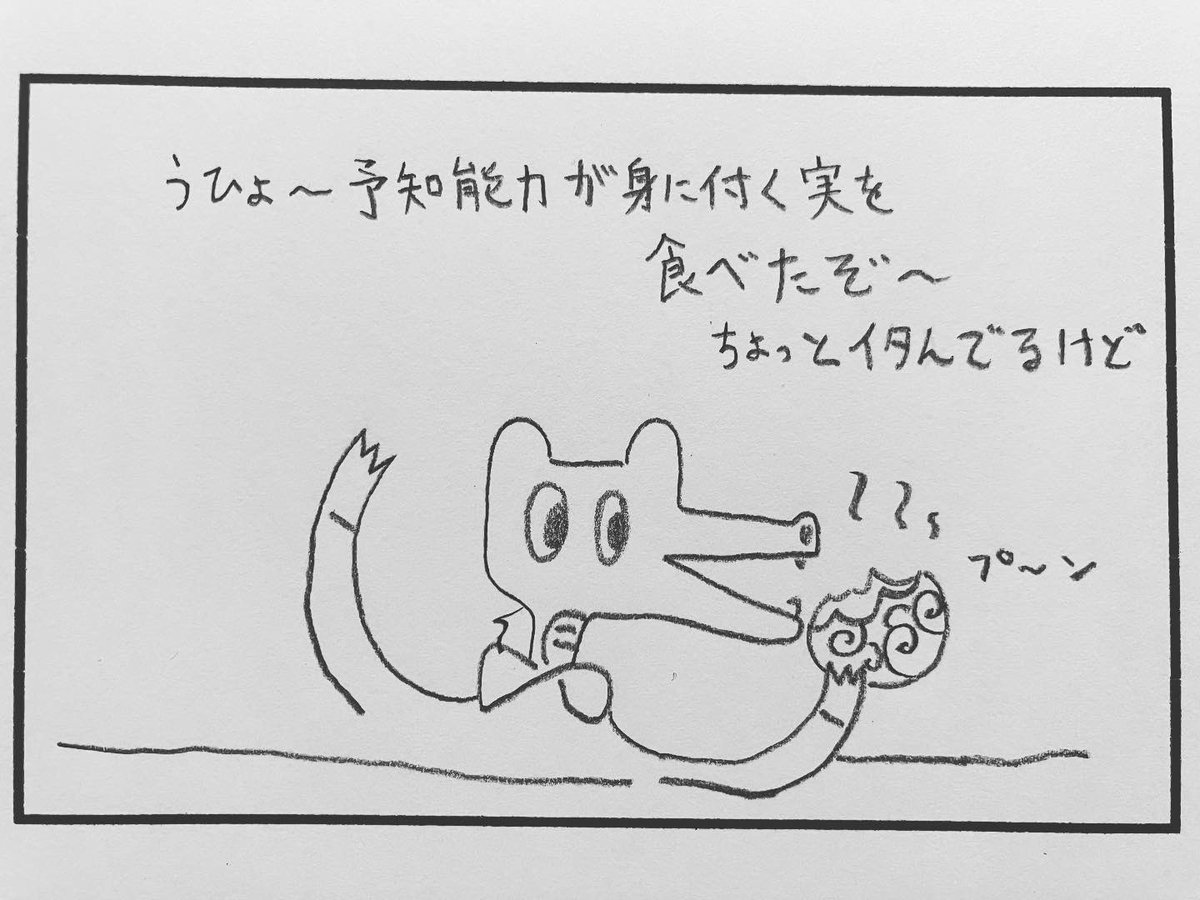 うひょ〜予知能力が身に付く実を
食べたぞ〜
ちょっとイタんでるけど
プ〜ン